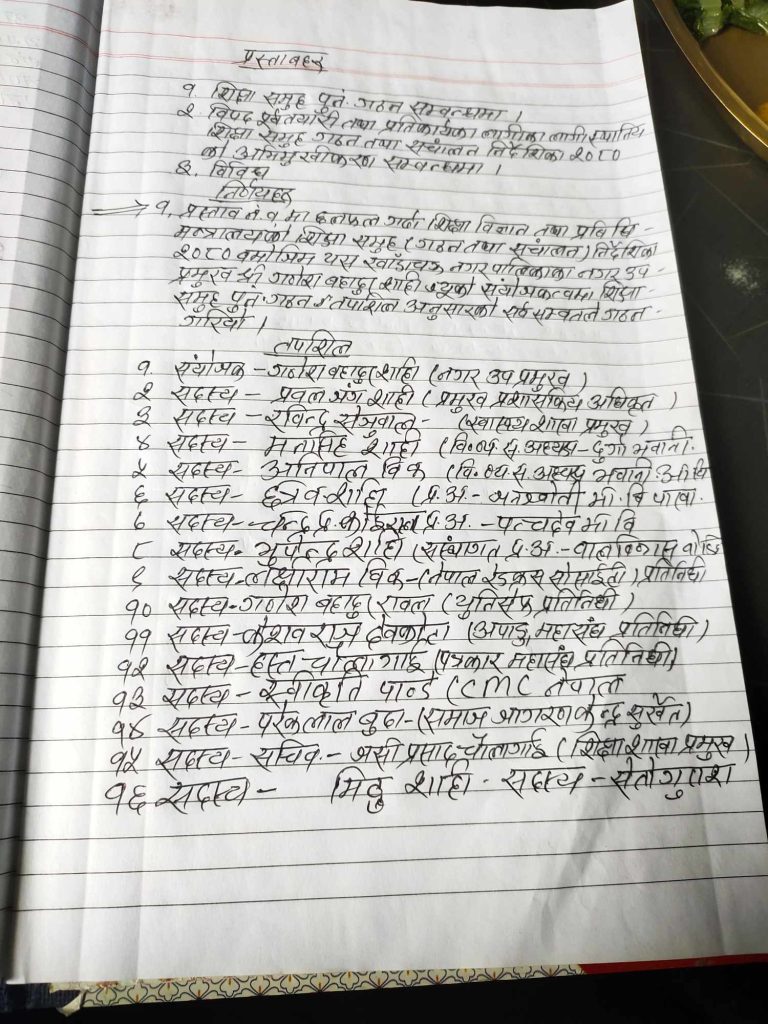 प्रस्तावहरु
१. शिक्षा समुह पुनः गठन सम्वन्धमा ।
२ विपद पूर्वतयारी तथा प्रतिकार्यका लागीका लागी स्थानिय
शिक्षा समुह गठन तथा संचालन निर्देशिका २०८०
को अभिमुखीकरण सम्वन्धमा ।
३. विविध
निर्णयहरु
१. प्रस्ताव नं १ मा छलफल गर्दा शिक्षा विज्ञान तथा प्रविधि -
मन्त्रालयको शिक्षा समुह (गठन तथा संचालन) निर्देशिका
२०८० वमोजिम यस खाँडाचक्र नगरपालिकाका नगर उप -
प्रमुख श्री गणेश बहादुर शाही ज्यूको संयोजकत्वमा शिक्षा -
समुह पुनः गठन तपशिल अनुसारको सर्वसम्वतले गठन -
गरियो ।
तपशिल
१. संयोजक - गणेश बहादुर शाही (नगर उप प्रमुख)
२ सदस्य - प्रवल जंग शाही (प्रमुख प्रशासकिय अधिकृत)
३ सदस्य - रविन्द्र सेजुवाल - (स्वास्थ्य शाखा प्रमुख)
४ सदस्य - मानसिंह शाही (वि.व्य.स. अध्यक्ष - दुर्गा भवानी.
५ सदस्य - अनिपाल विक (वि.व्य.स. अध्यक्ष भवानी
६ सदस्य - शाही (प्र.अ. - मा.वि
७ सदस्य - चन्द्र प्र. प्र.अ. - पन्चदेव मा वि
८ सदस्य - भुपेन्द्र शाही (संस्थागत प्र.अ. - वालविकास वोर्डि
९ सदस्य - लक्षीराम विक - (नेपाल रेडक्रस सोसाईटी) प्रतिनिधी
१० सदस्य - गणेश बहादुर रावल (युनिसेफ प्रतिनिधी)
११ सदस्य - केशव राज देवकोटा (अपाङ्ग महासंघ प्रतिनिधी)
१२ सदस्य - हस्त चौलागाई (पत्रकार महासंघ प्रतिनिधी)
१३ सदस्य - स्वीकृति पाण्डे (CMC नेपाल
१४ सदस्य - परेकलाल वुढा - (समाज जागरण केन्द्र सुर्खेत)
१५ सदस्य - सचिव - जसी प्रसाद चौलागाई (शिक्षा शाखा प्रमुख)
१६ सदस्य - मिठु शाही - सदस्य - सेतोगुराश